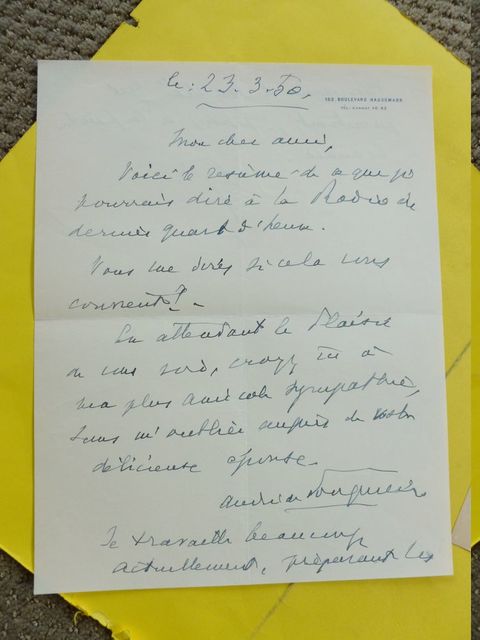 le : 23.3.50.
152 BOULEVARD HAUSSMANN
TÉL. CARNOT
Mon cher ami,
Voici le résumé de ce que je
pourrais dire à la Radio le
dernier quart d'heure.
Vous me direz si cela vous
convient ? -
En attendant le Plaisir
de vous voir, croyez à
ma plus amicale sympathie,
sans m'oublier auprès de votre
délicieuse épouse.
Je travaille beaucoup
actuellement, préparant les